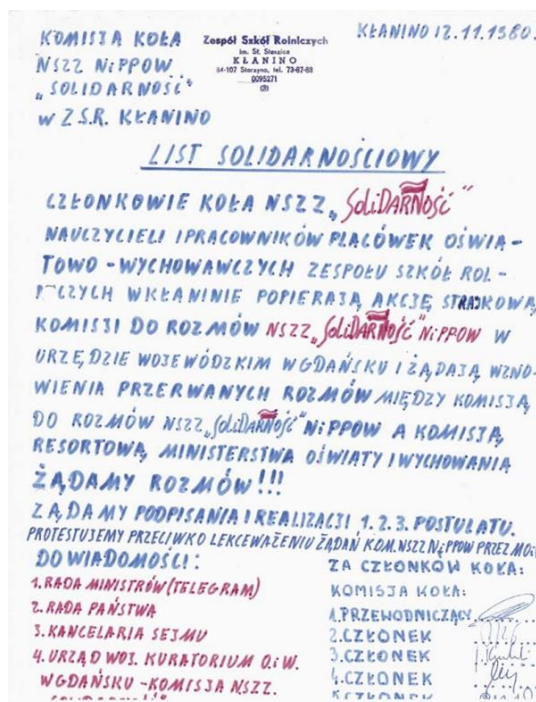 KOMISJA KOŁA
NSZZ NiPPOW
„SOLIDARNOŚĆ"
w Z.S.R. KŁANINO
Zespół Szkół Rolniczych
im. St. Staszica
KŁANINO
84-107 Starzyno, tel. 73-87-88
0095271
(3)
KŁANINO 12.11.1980.
LIST SOLIDARNOŚCIOWY
CZŁONKOWIE KOŁA NSZZ „SOLiDARNOŚĆ"
NAUCZYCIELI I PRACOWNIKÓW PLACÓWEK OŚWIA-
TOWO-WYCHOWAWCZYCH ZESPOŁU SZKÓŁ ROL-
NICZYCH W KŁANINIE POPIERAJĄ AKCJĘ STRAJKOWĄ
KOMISJI DO ROZMÓW NSZZ „SOLiDARNOŚĆ" NiPPOW W
URZĘDZIE WOJEWÓDZKIM W GDAŃSKU I ŻĄDAJĄ WZNO-
WIENIA PRZERWANYCH ROZMÓW MIĘDZY KOMISJĄ
DO ROZMÓW NSZZ „SOLiDARNOŚĆ" NiPPOW A KOMISJĄ
RESORTOWĄ MINISTERSTWA OŚWIATY I WYCHOWANIA
ŻĄDAMY ROZMÓW!!!
ŻĄDAMY PODPISANIA I REALIZACJI 1.2.3. POSTULATU.
PROTESTUJEMY PRZECIWKO LEKCEWAŻENIU ŻĄDAŃ KOM. NSZZ NiPPOW PRZEZ
DO WIADOMOŚCI:
1. RADA MINISTRÓW (TELEGRAM)
2. RADA PAŃSTWA
3. KANCELARIA SEJMU
4. URZĄD WOJ. KURATORIUM O. i W.
W GDAŃSKU - KOMISJA NSZZ.
ZA CZŁONKÓW KOŁA:
KOMISJA KOŁA:
1. PRZEWODNICZĄCY
2. CZŁONEK
3. CZŁONEK
4. CZŁONEK
5. CZŁONEK